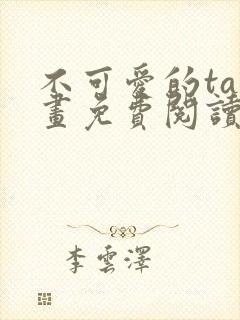 不可愛的ta
畫免費閱讀
李雲澤